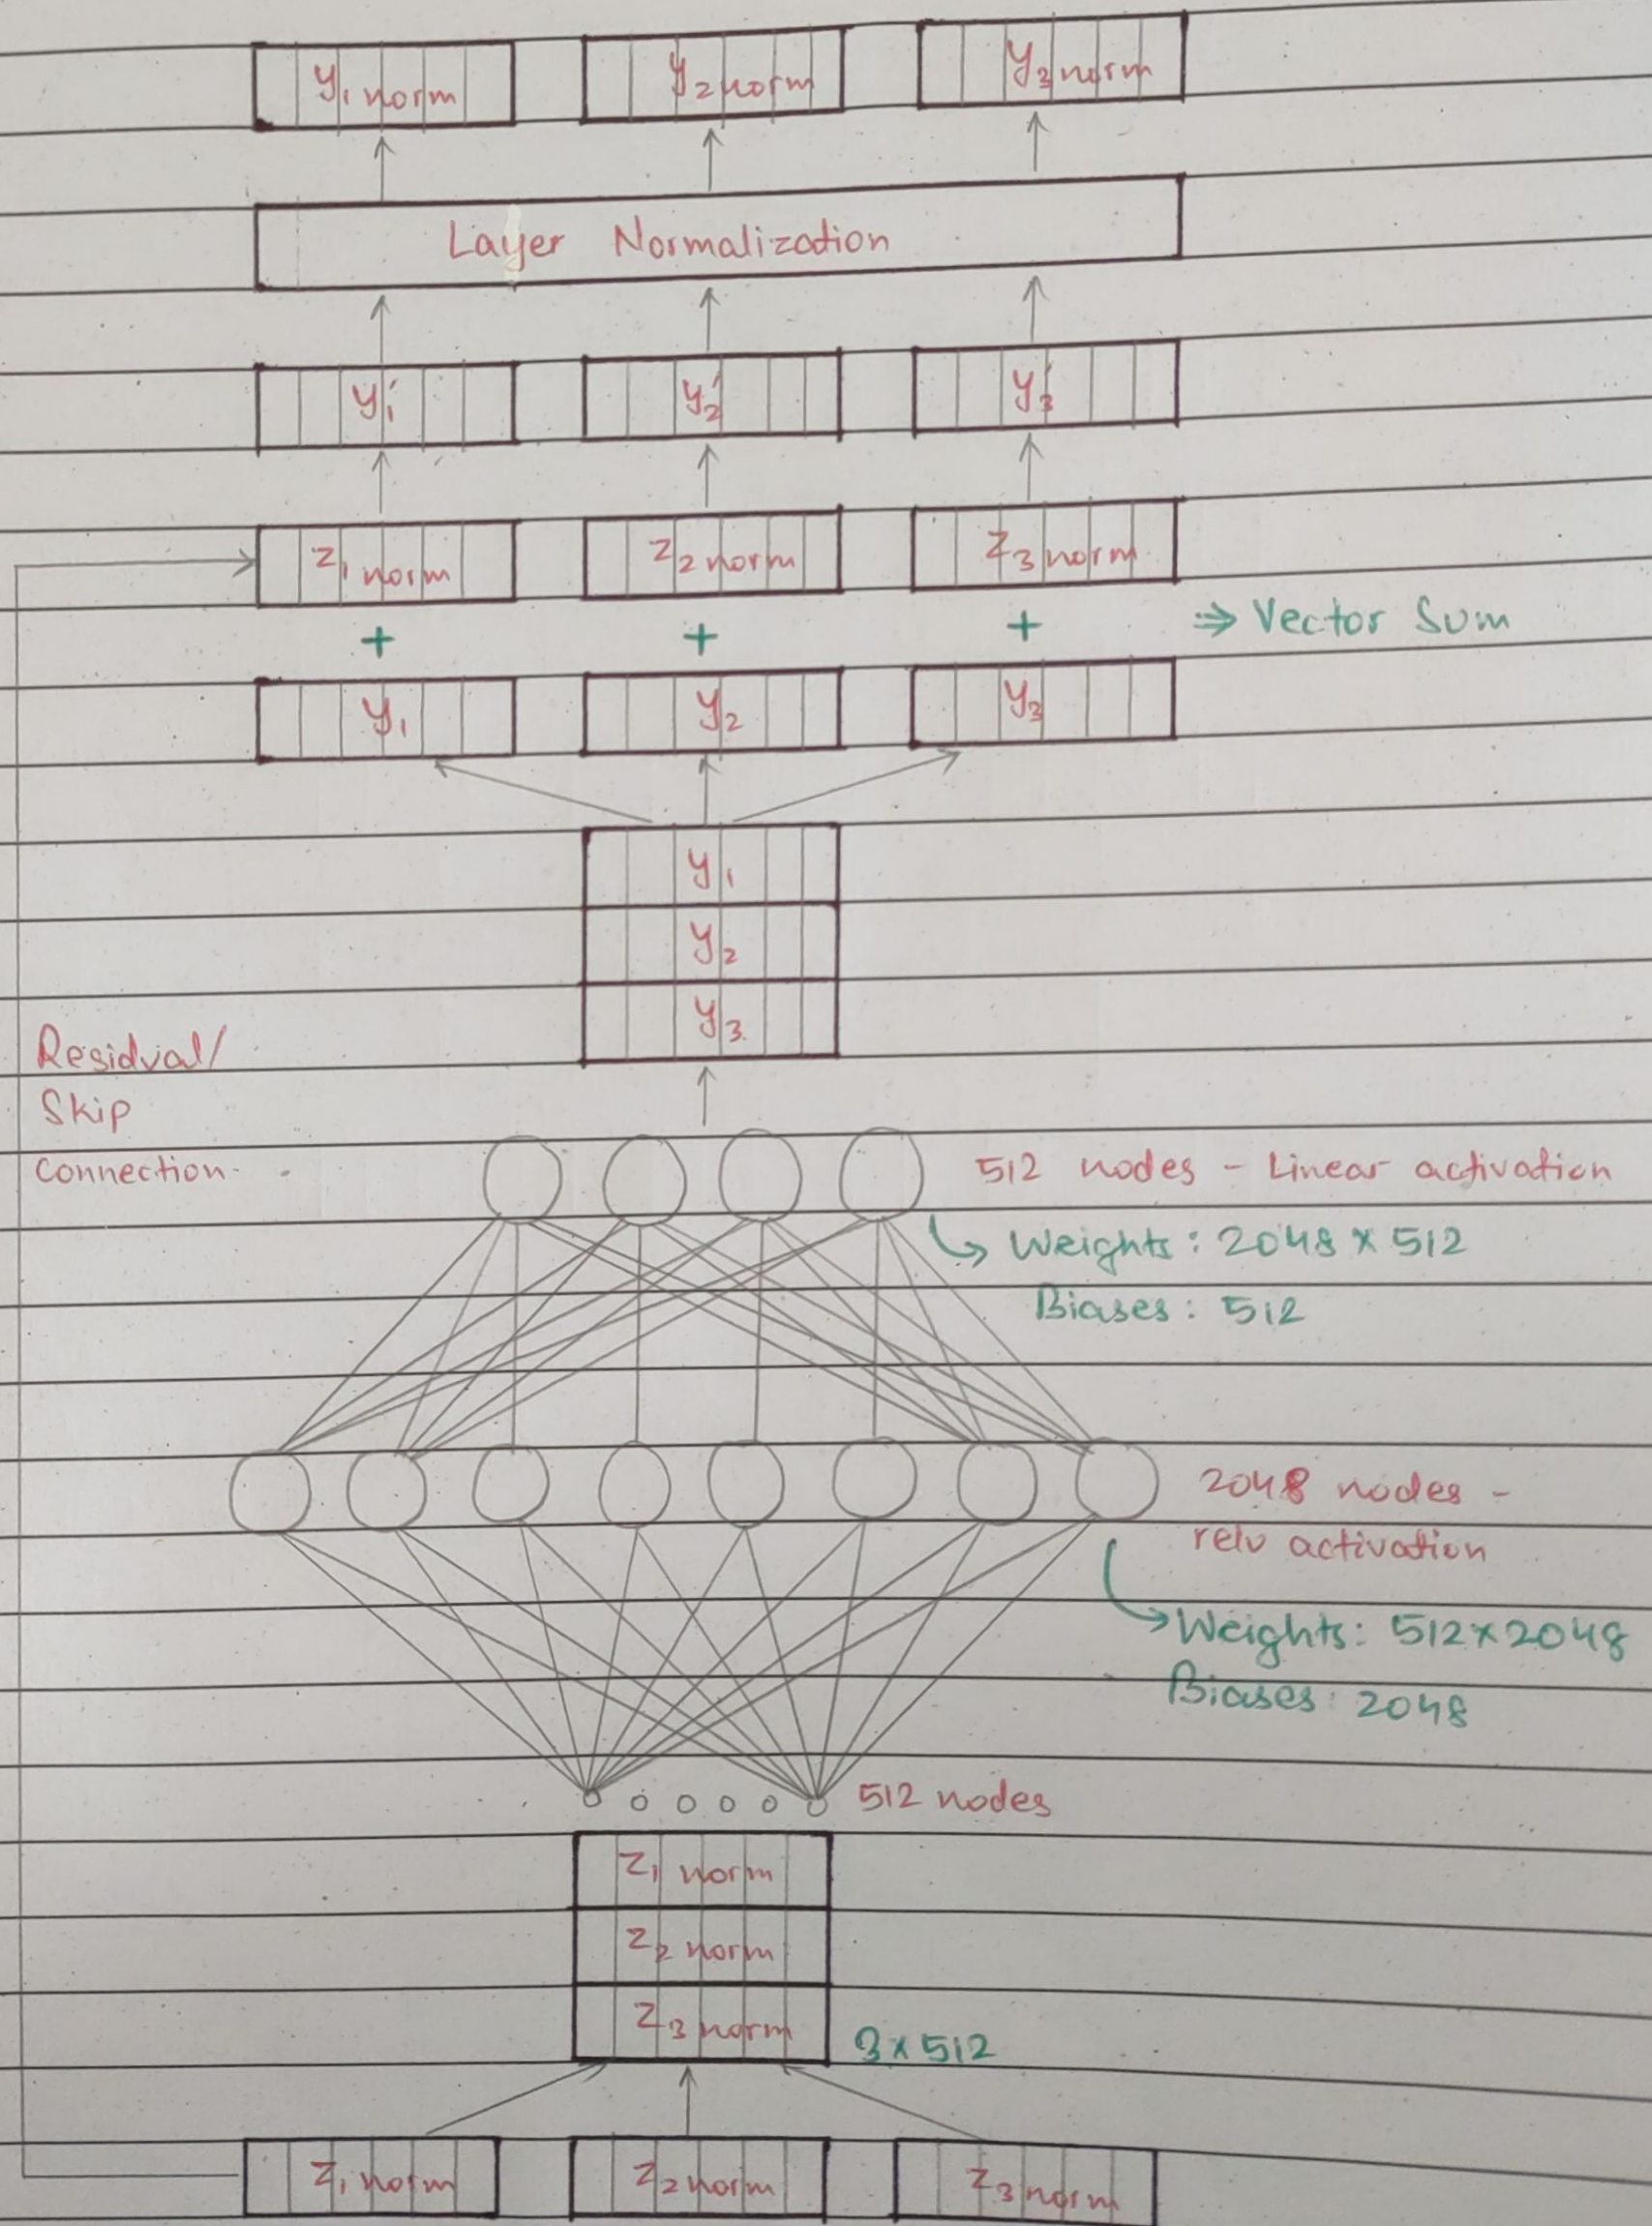 y₁ norm y₂ norm y₃ norm
Layer Normalization
y₁′ y₂′ y₃′
z₁ norm z₂ norm z₃ norm
+ + + ⇒ Vector Sum
y₁ y₂ y₃
y₁
y₂
y₃
Residual/
Skip
connection
512 nodes - Linear activation
↳ Weights: 2048 × 512
Biases: 512
2048 nodes -
relu activation
↳ Weights: 512×2048
Biases: 2048
512 nodes
z₁ norm
z₂ norm
z₃ norm 3×512
z₁ norm z₂ norm z₃ norm